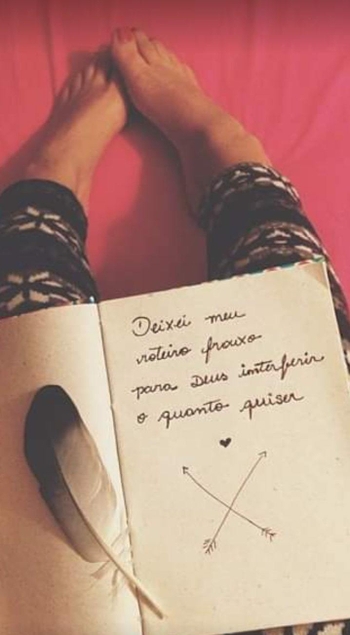 Deixei meu
roteiro frouxo
para Deus interferir
o quanto quiser